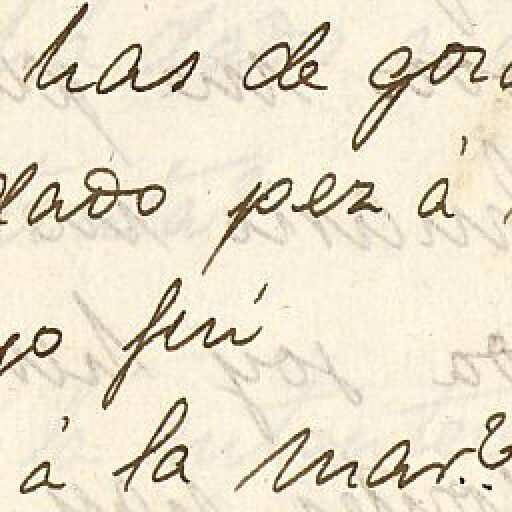 has de gor
lado pez á
yo fuí
á la mar.?